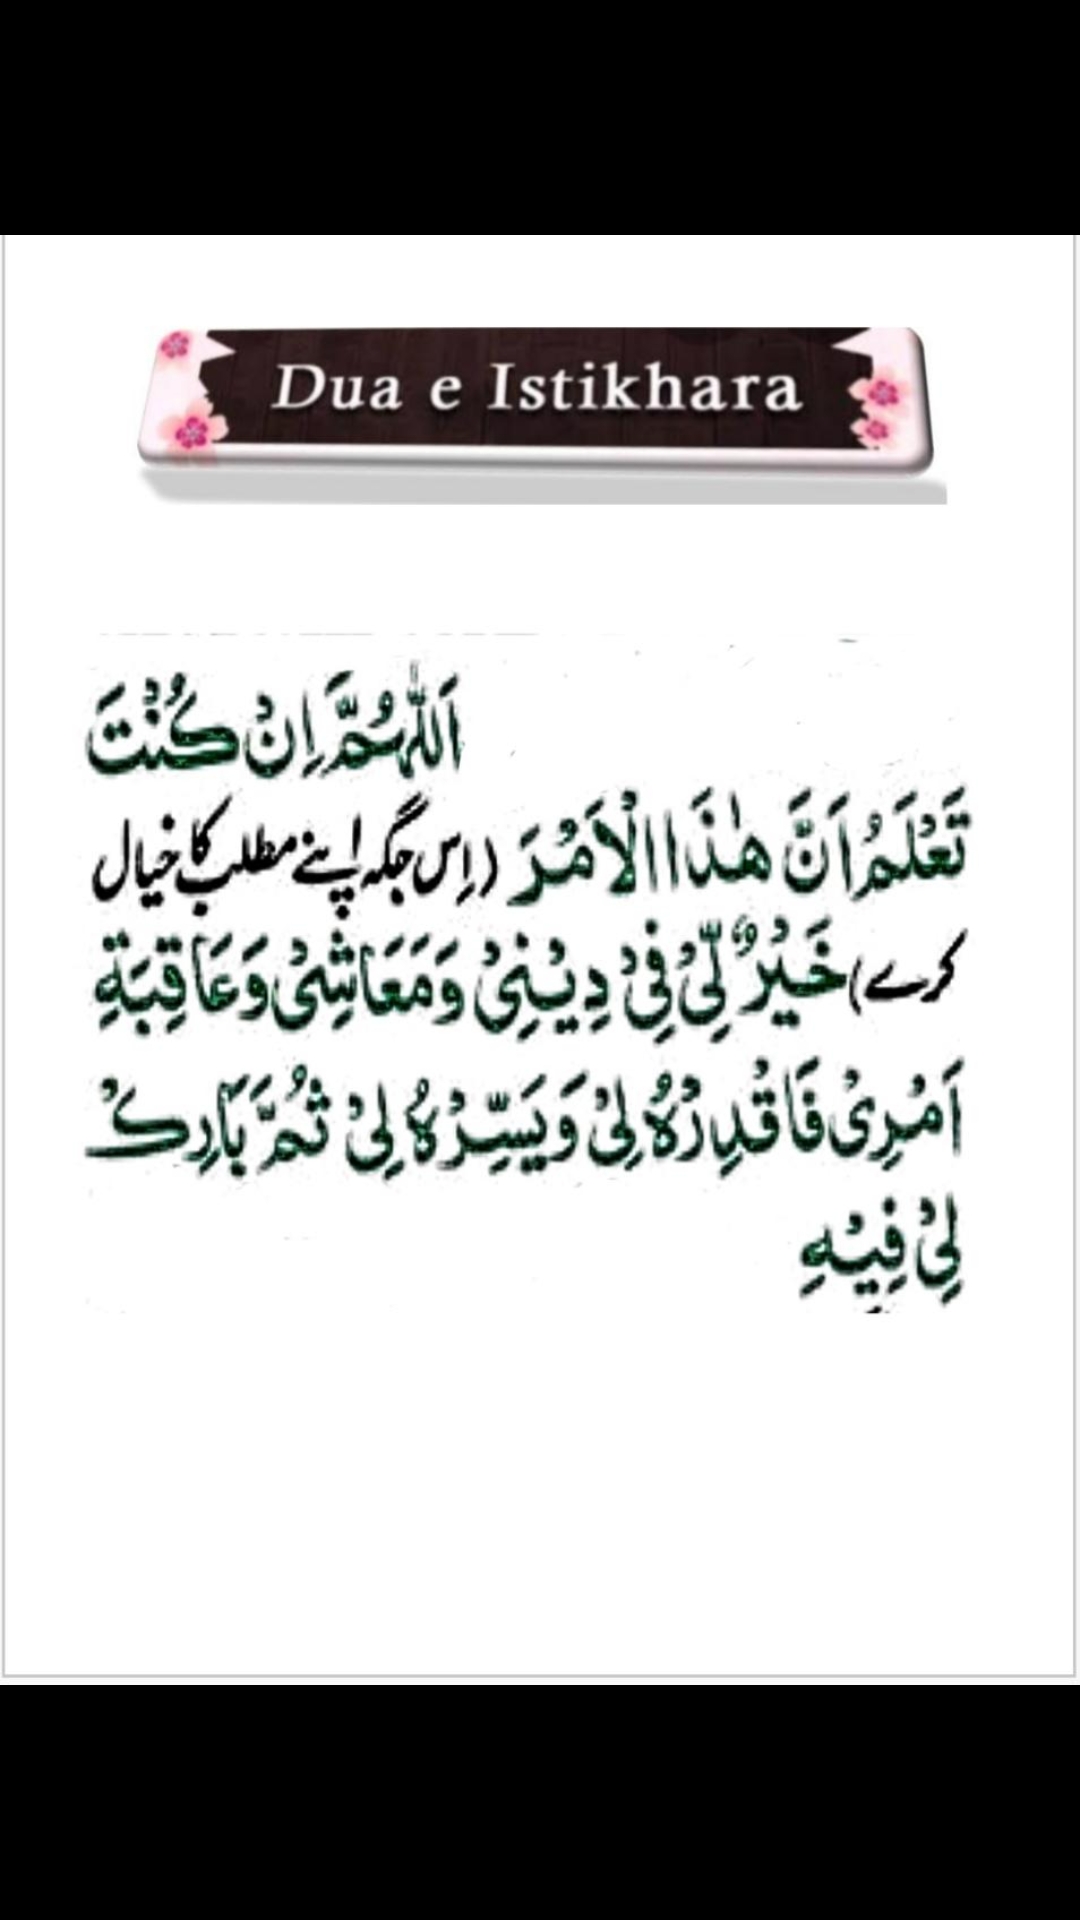 Dua e Istikhara
اَللّٰهُمَّ اِنْ كُنْتَ
تَعْلَمُ اَنَّ هٰذَا الْاَمْرَ (اِس جگہ اپنے مطلب کا خیال
کرے) خَيْرٌ لِّىْ فِىْ دِيْنِىْ وَمَعَاشِىْ وَعَاقِبَةِ
اَمْرِىْ فَاقْدِرْهُ لِىْ وَيَسِّرْهُ لِىْ ثُمَّ بَارِكْ
لِىْ فِيْهِ